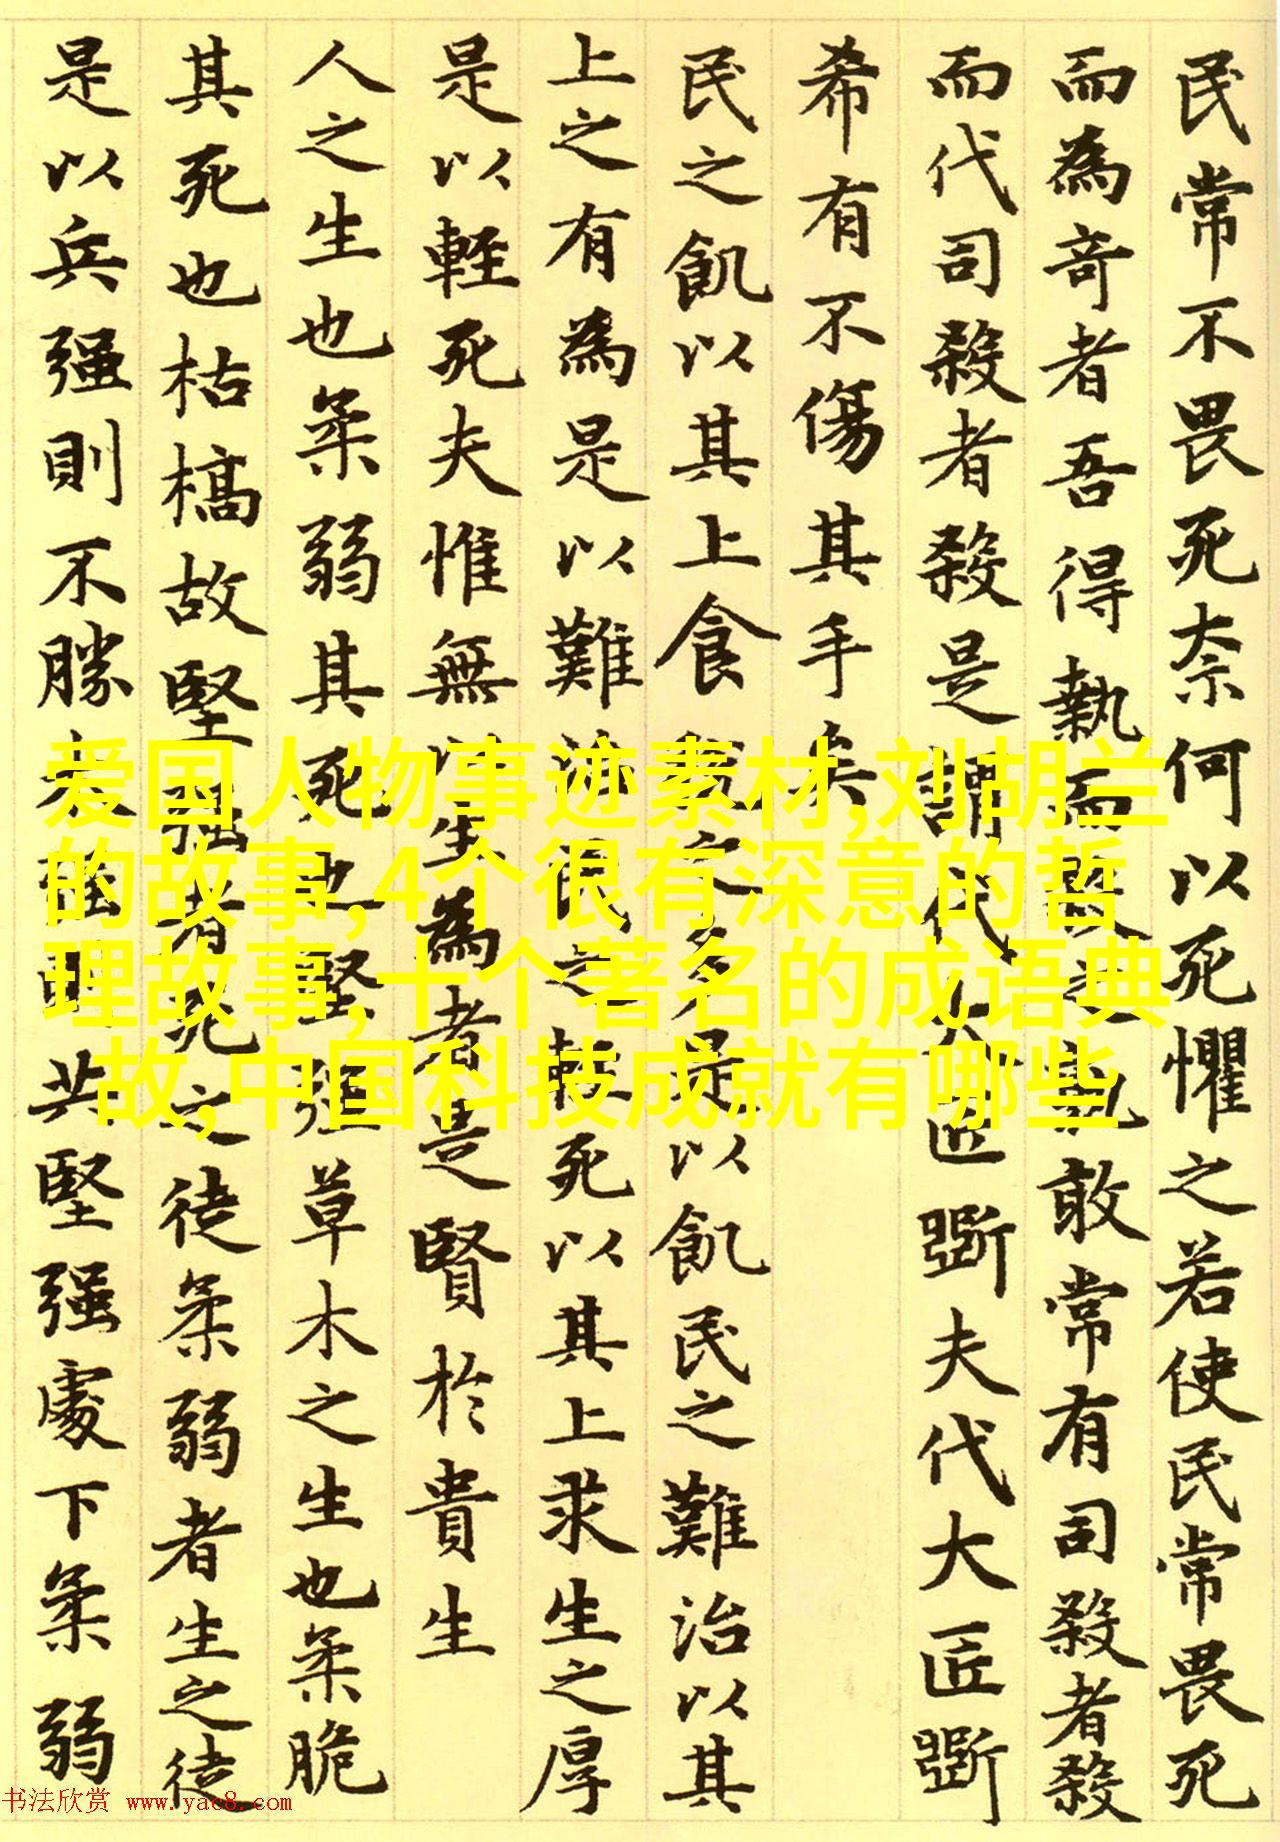 民常不畏死柰何以死懼之若使民常畏死
而為奇者吾得執而殺之孰敢常有司殺者殺
而代司殺者殺是謂代大匠斲夫代大匠斲
希有不傷其手矣
民之飢以其上食税之多是以飢民之難治以其
上之有為是以難治民之輕死以其上求生之厚
是以輕死夫惟無以生為者是賢於貴生
人之生也柔弱其死也堅强草木之生也柔脆
其死也枯槁故堅强者死之徒柔弱者生之徒
是以兵强則不勝木强則共堅强處下柔弱
爱国人物事迹素材,刘胡兰
的故事,4个很有深意的哲
理故事,十个著名的成语典
故,中国科技成就有哪些
书法欣赏 www.yac8.com